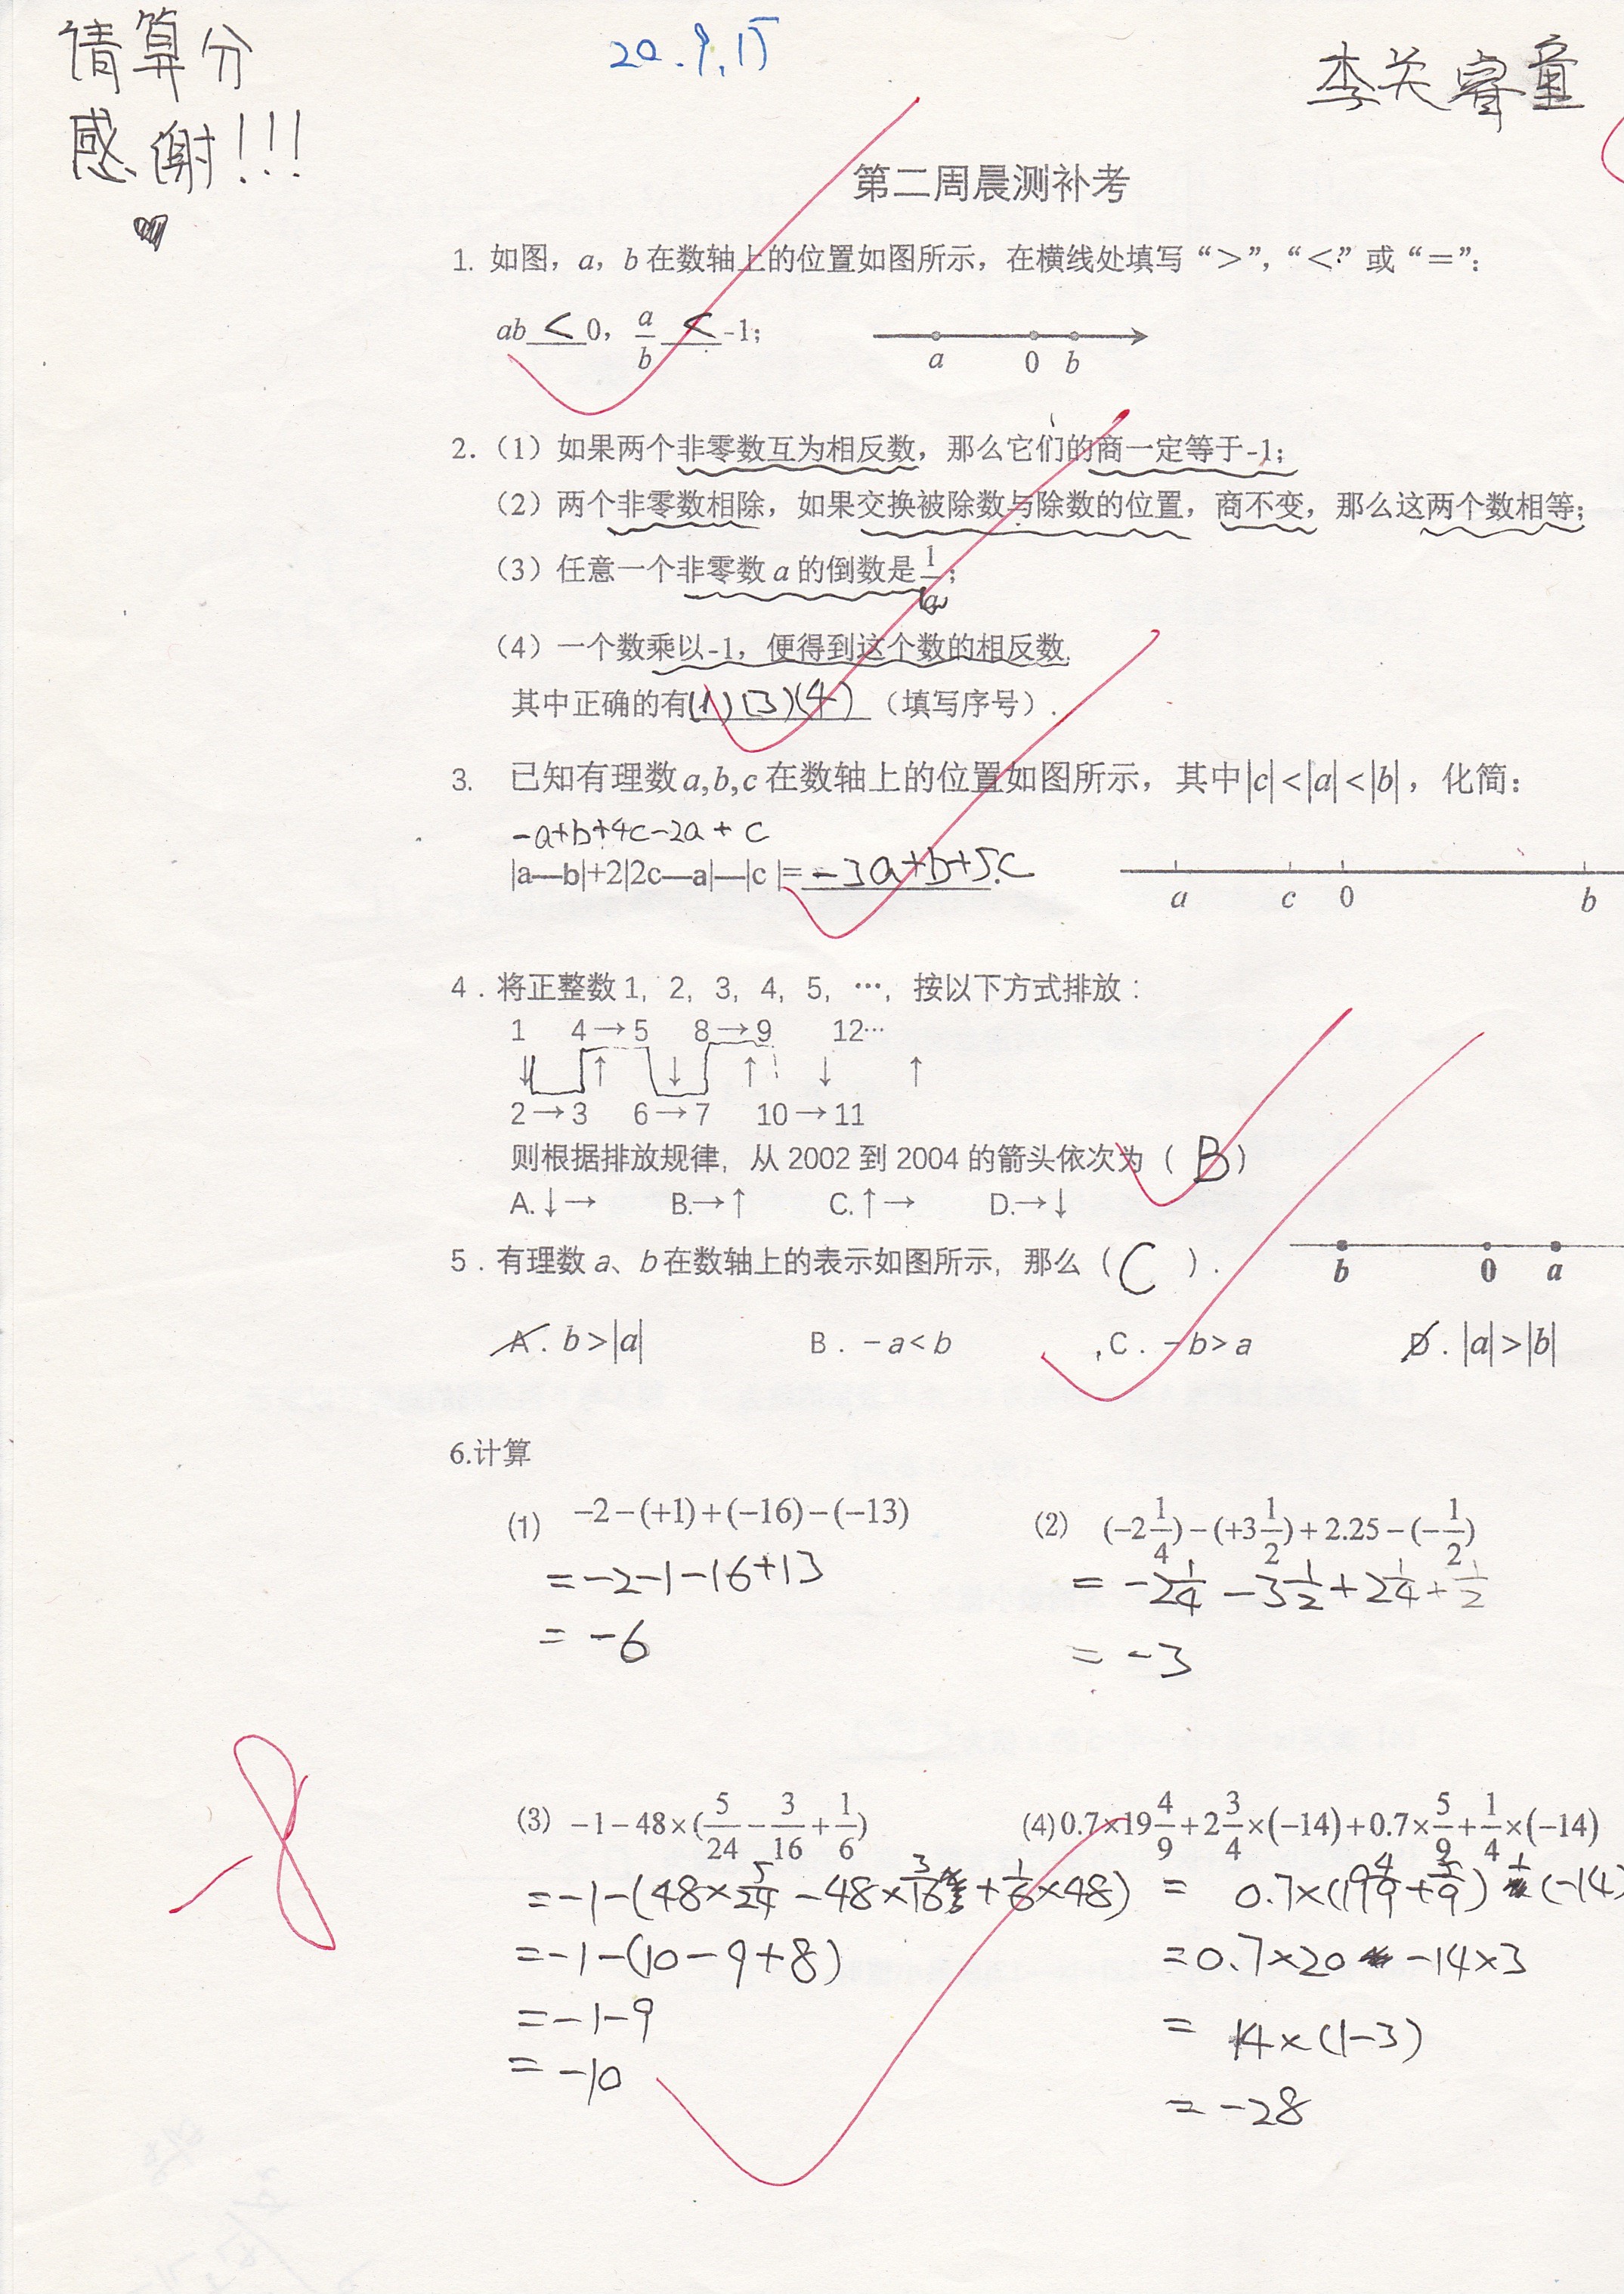 请算分
20.9.15
李关睿童
感谢!!!
第二周晨测补考
1. 如图，a，b 在数轴上的位置如图所示，在横线处填写“＞”，“＜”或“＝”：
ab < 0， a/b < -1；
a 0 b
2.（1）如果两个非零数互为相反数，那么它们的商一定等于-1；
（2）两个非零数相除，如果交换被除数与除数的位置，商不变，那么这两个数相等；
（3）任意一个非零数 a 的倒数是 1/a；
（4）一个数乘以-1，便得到这个数的相反数.
其中正确的有(1)(3)(4)（填写序号）.
3. 已知有理数 a,b,c 在数轴上的位置如图所示，其中|c|<|a|<|b|，化简：
-a+b+4c-2a+c
|a—b|+2|2c—a|—|c|=-3a+b+5c
a c 0 b
4．将正整数 1，2，3，4，5，…，按以下方式排放：
1 4→5 8→9 12…
↓ ↑ ↓ ↑ ↓ ↑
2→3 6→7 10→11
则根据排放规律，从 2002 到 2004 的箭头依次为（ B ）
A.↓→ B.→↑ C.↑→ D.→↓
5．有理数 a、b 在数轴上的表示如图所示，那么（ C ）.
b 0 a
A．b>|a| B．－a<b C．－b>a D．|a|>|b|
6.计算
(1) −2−(+1)+(−16)−(−13)
=-2-1-16+13
=-6
(2) (−2 1/4)−(+3 1/2)+2.25−(−1/2)
=-2 1/4-3 1/2+2 1/4+1/2
=-3
(3) −1−48×(5/24−3/16+1/6)
=-1-(48×5/24-48×3/16+1/6×48)
=-1-(10-9+8)
=-1-9
=-10
(4) 0.7×19 4/9+2 3/4×(−14)+0.7×5/9+1/4×(−14)
= 0.7×(19 4/9+5/9) + (-14)
=0.7×20 -14×3
= 14×(1-3)
=-28
-8